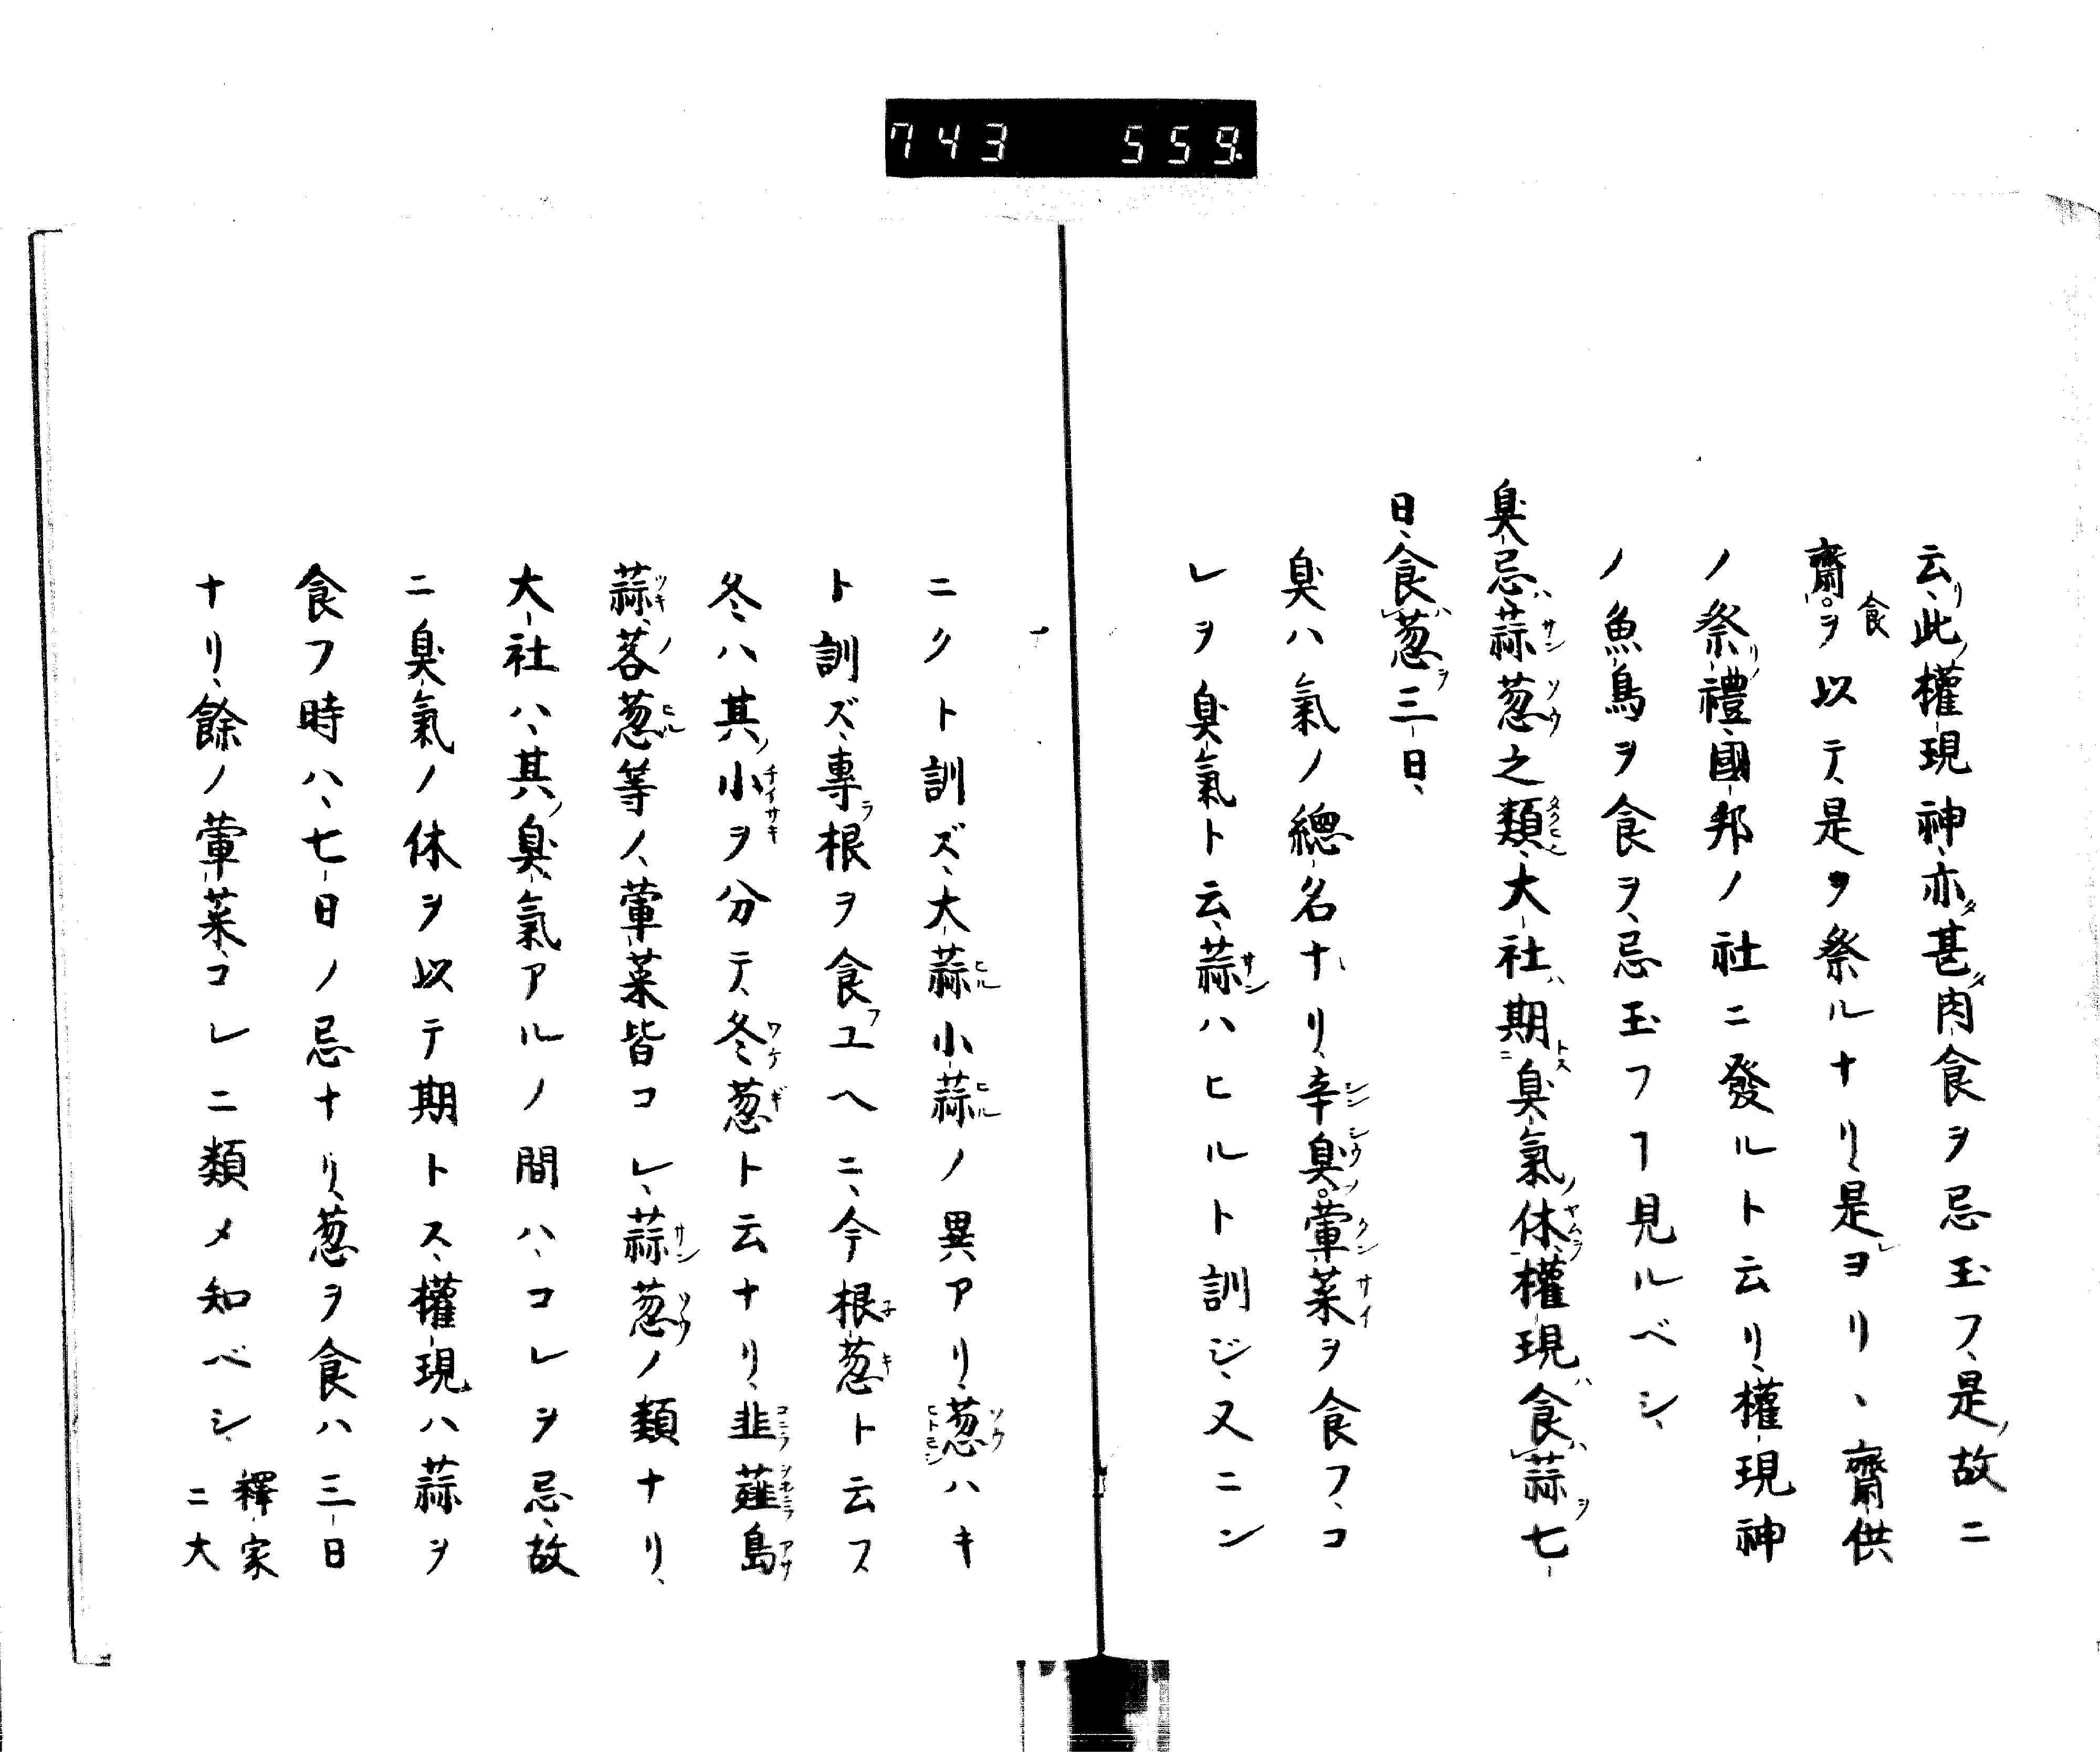 743 559.
云、此權現神、亦甚肉食ヲ忌玉フ、是故ニ
齋食ヲ以テ、是ヲ祭ルナリ、是ヨリ、齋供
ノ祭禮、國邦ノ社ニ發ルト云リ、權現神
ノ魚鳥ヲ食ヲ、忌玉フヿ見ルベシ、
臭忌、蒜葱之類、大社期臭氣休、權現食蒜七
日、食葱三日、
臭ハ氣ノ總名ナリ、辛臭葷菜ヲ食フ、コ
レヲ臭氣ト云、蒜ハヒルト訓ジ、又ニン
ニクト訓ズ、大蒜小蒜ノ異アリ、葱ハキ
ト訓ズ、專根ヲ食ユヘニ、今根葱ト云フ
冬ハ其小ヲ分テ、冬葱ト云ナリ、韭薤島
蒜、茖葱等ノ、葷菜皆コレ、蒜葱ノ類ナリ、
大社ハ、其臭氣アルノ間ハ、コレヲ忌、故
ニ臭氣ノ休ヲ以テ期トス、權現ハ蒜ヲ
食フ時ハ、七日ノ忌ナリ、葱ヲ食ハ三日
ナリ、餘ノ葷菜、コレニ類メ知ベシ、釋家
ニ大